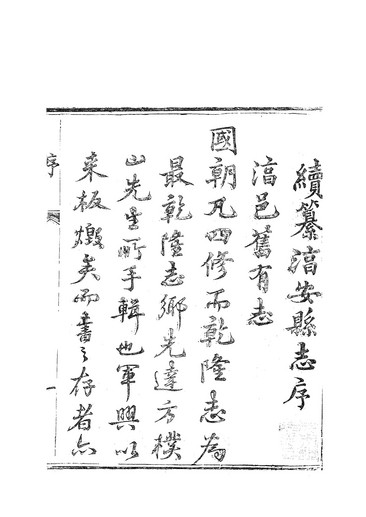 續纂淯安縣志序
淯邑舊有志
國朝凡四修而乾隆志為
最乾隆志鄉先達方樸
山先生所手輯也軍興以
來板燬矣而書之存者亦
序
一